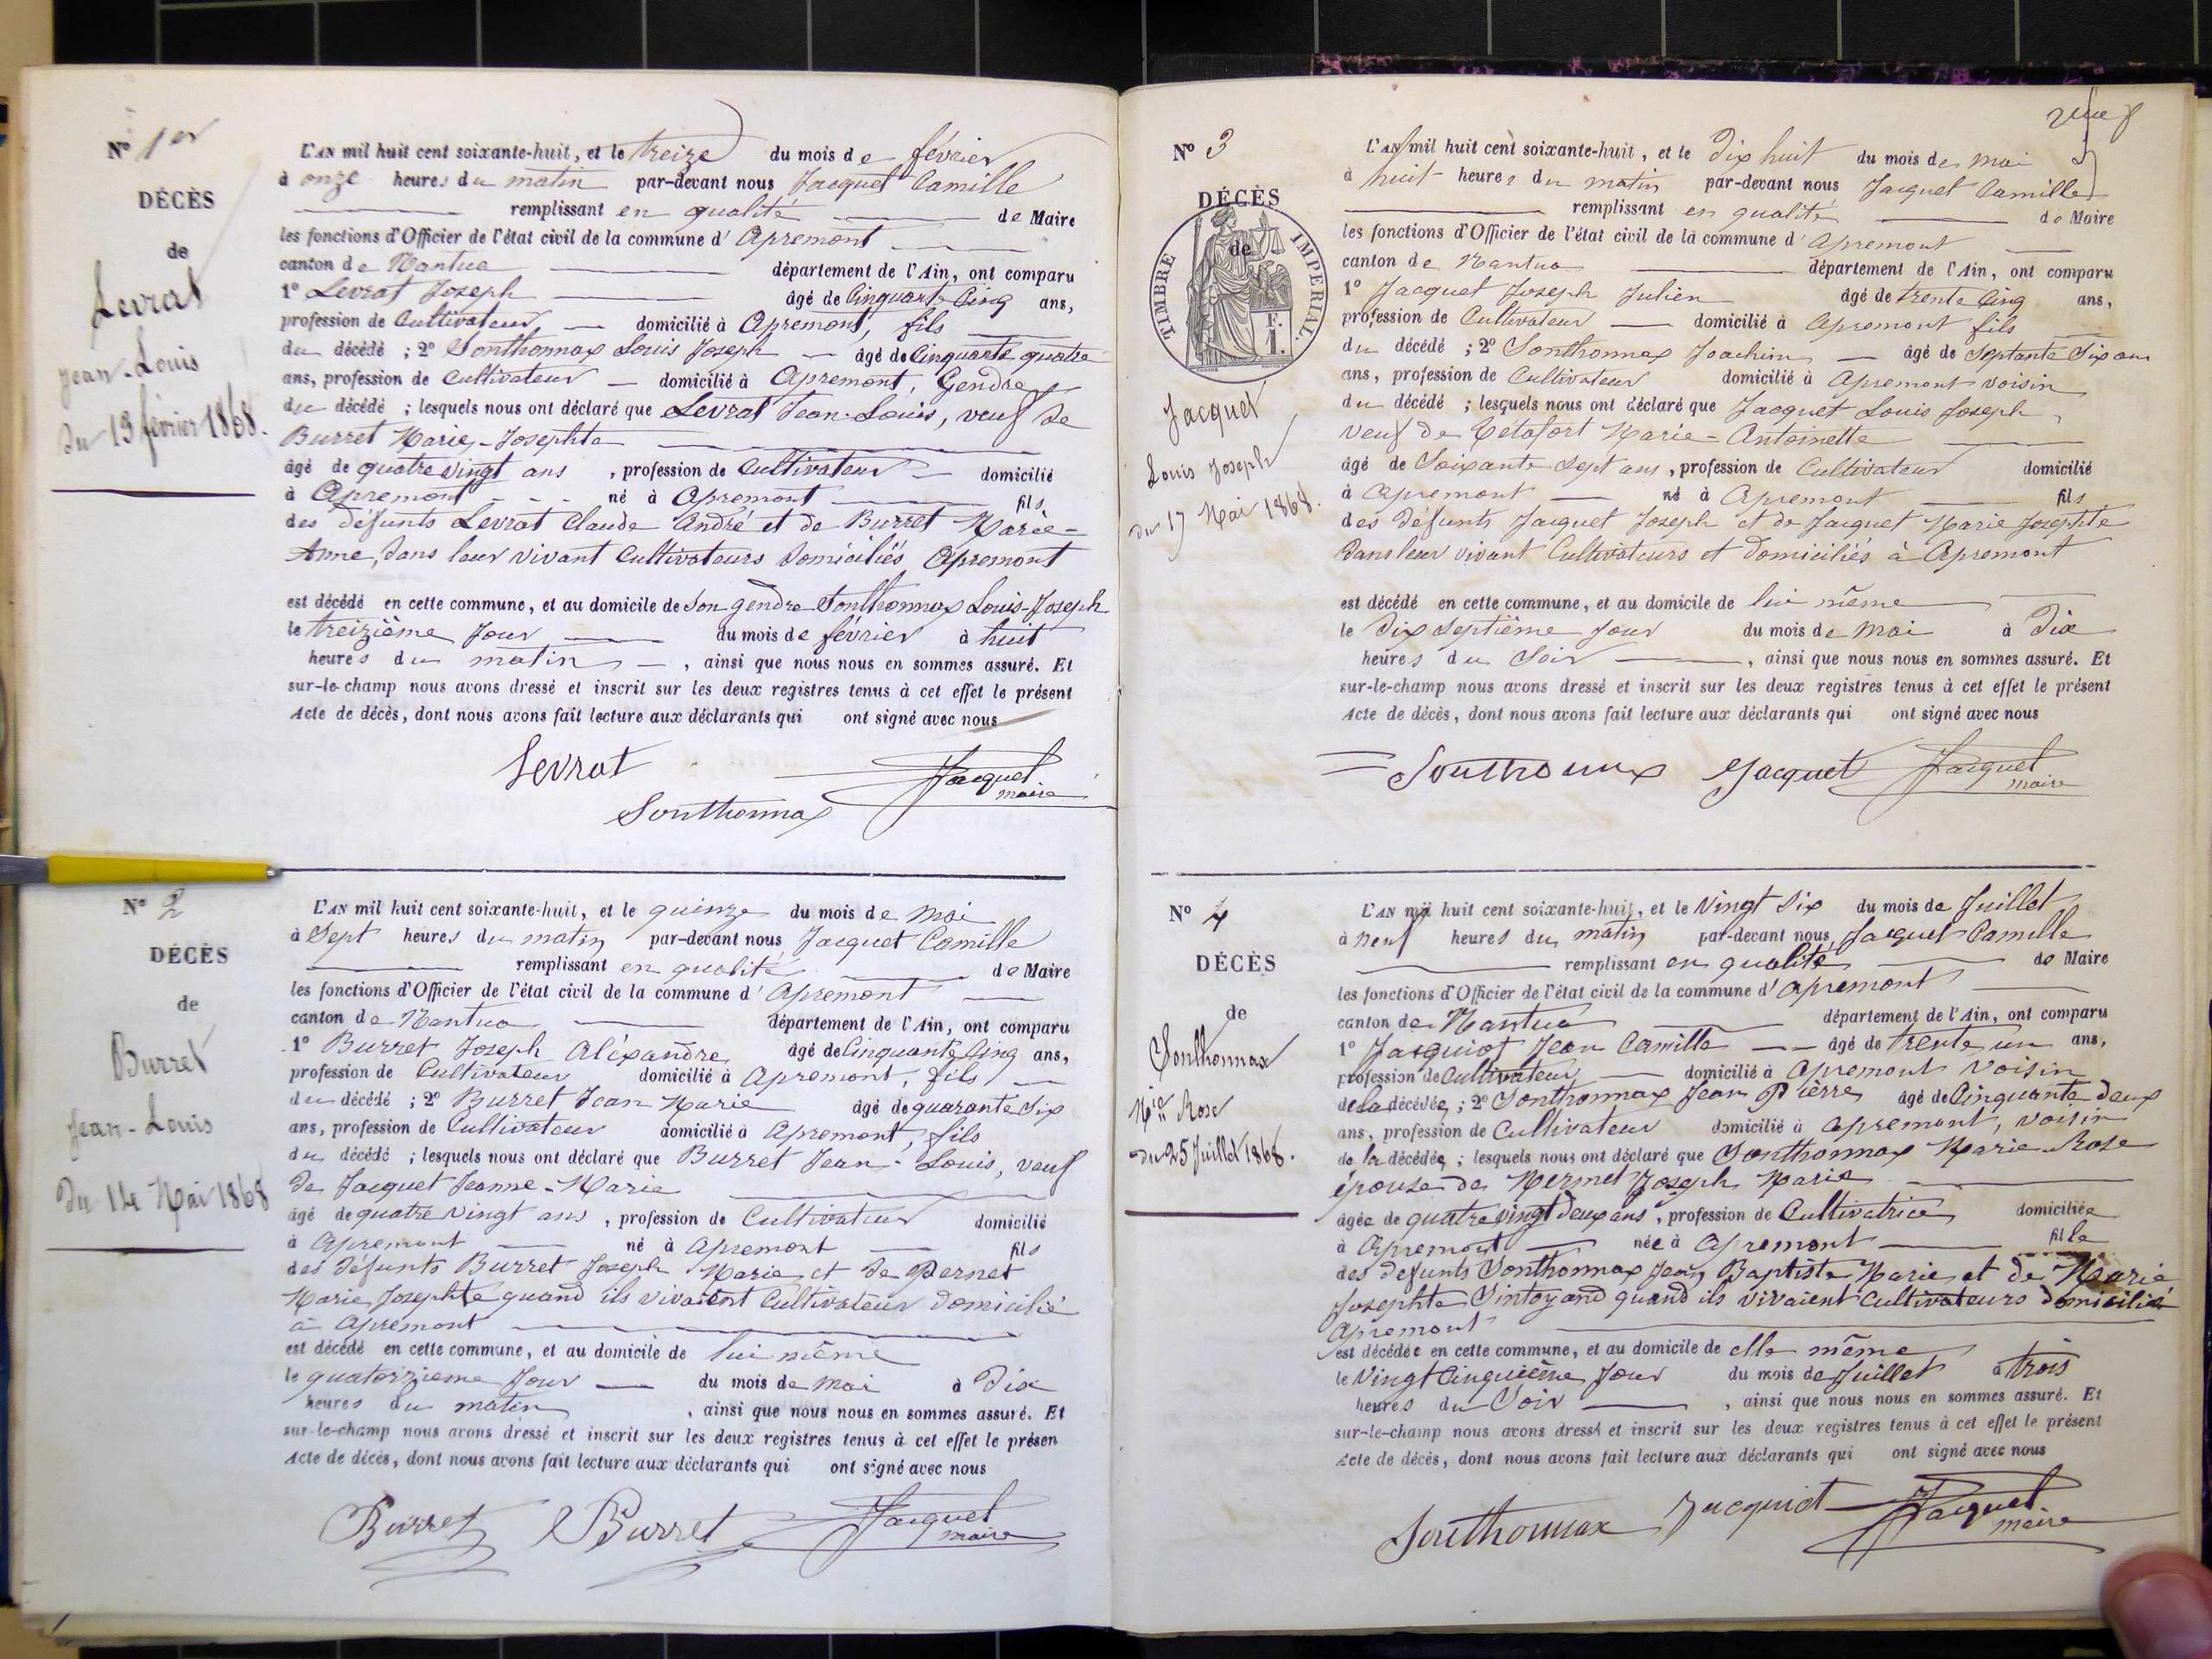 N° 1er
DÉCÈS
de
Levrat
Jean-Louis
du 13 février 1868.
L'AN mil huit cent soixante-huit, et le treize du mois de février
à onze heures du matin par-devant nous Jacquet Camille
remplissant en qualité de Maire
les fonctions d'Officier de l'état civil de la commune d' Apremont
canton de Nantua département de l'Ain, ont comparu
1° Levrat Joseph âgé de Cinquante Cinq ans,
profession de Cultivateur domicilié à Apremont, fils
du décédé ; 2° Sonthonnax Louis Joseph âgé de Cinquante quatre
ans, profession de Cultivateur domicilié à Apremont, Gendre
du décédé ; lesquels nous ont déclaré que Levrat Jean-Louis, veuf de
Burret Marie-Josephte
âgé de quatre vingt ans, profession de Cultivateur domicilié
à Apremont né à Apremont fils
des défunts Levrat Claude André et de Burret Marie-
Anne, dans leur vivant Cultivateurs domiciliés Apremont
est décédé en cette commune, et au domicile de Son gendre Sonthonnax Louis-Joseph
le treizième Jour du mois de février à huit
heures du matin, ainsi que nous nous en sommes assuré. Et
sur-le-champ nous avons dressé et inscrit sur les deux registres tenus à cet effet le présent
Acte de décès, dont nous avons fait lecture aux déclarants qui ont signé avec nous
Levrat Jacquet
maire
Sonthonnax
N° 2
DÉCÈS
de
Burret
Jean-Louis
Du 14 Mai 1868
L'AN mil huit cent soixante-huit, et le quinze du mois de Mai
à Sept heures du matin par-devant nous Jacquet Camille
remplissant en qualité de Maire
les fonctions d'Officier de l'état civil de la commune d' Apremont
canton de Nantua département de l'Ain, ont comparu
1° Burret Joseph Aléxandre âgé de Cinquante Cinq ans,
profession de Cultivateur domicilié à Apremont, fils
du décédé ; 2° Burret Jean Marie âgé de quarante Six
ans, profession de Cultivateur domicilié à Apremont, fils
du décédé ; lesquels nous ont déclaré que Burret Jean-Louis, veuf
de Jacquet Jeanne-Marie
âgé de quatre vingt ans, profession de Cultivateur domicilié
à Apremont né à Apremont fils
des défunts Burret Joseph Marie et de Pernet
Marie Josephte quand ils vivaient Cultivateur domicilié
à Apremont
est décédé en cette commune, et au domicile de lui même
le quatorzieme Jour du mois de Mai à Dix
heures du matin, ainsi que nous nous en sommes assuré. Et
sur-le-champ nous avons dressé et inscrit sur les deux registres tenus à cet effet le présen
Acte de décès, dont nous avons fait lecture aux déclarants qui ont signé avec nous
Burret Burret Jacquet
maire
N° 3
DÉCÈS
de
TIMBRE IMPERIAL
F.
1.
Jacquet
Louis Joseph
du 17 Mai 1868.
L'AN mil huit cent soixante-huit, et le Dix huit du mois de mai
à huit heures du matin par-devant nous Jacquet Camille
remplissant en qualité de Maire
les fonctions d'Officier de l'état civil de la commune d' Apremont
canton de Nantua département de l'Ain, ont comparu
1° Jacquet Joseph Julien âgé de trente Cinq ans,
profession de Cultivateur domicilié à Apremont fils
du décédé ; 2° Sonthonnax Joachim âgé de Septante Six ans
ans, profession de Cultivateur domicilié à Apremont voisin
du décédé ; lesquels nous ont déclaré que Jacquet Louis Joseph,
veuf de Tétafort Marie-Antoinette
âgé de Soixante Sept ans, profession de Cultivateur domicilié
à Apremont né à Apremont fils
des défunts Jacquet Joseph et de Jacquet Marie Josephte
dans leur vivant Cultivateurs et domiciliés à Apremont
est décédé en cette commune, et au domicile de lui même
le Dix Septième Jour du mois de Mai à Dix
heures du Soir, ainsi que nous nous en sommes assuré. Et
sur-le-champ nous avons dressé et inscrit sur les deux registres tenus à cet effet le présent
Acte de décès, dont nous avons fait lecture aux déclarants qui ont signé avec nous
Sonthonnax Jacquet Jacquet
maire
N° 4
DÉCÈS
de
Sonthonnax
Mie Rose
du 25 Juillet 1868.
L'AN mil huit cent soixante-huit, et le Vingt Six du mois de Juillet
à neuf heures du matin par-devant nous Jacquet Camille
remplissant en qualité de Maire
les fonctions d'Officier de l'état civil de la commune d' Apremont
canton de Nantua département de l'Ain, ont comparu
1° Jacquiot Jean Camille âgé de trente un ans,
profession de Cultivateur domicilié à Apremont Voisin
de la décédée ; 2° Sonthonnax Jean Pierre âgé de Cinquante deux
ans, profession de Cultivateur domicilié à Apremont, voisin
de la décédée ; lesquels nous ont déclaré que Sonthonnax Marie Rose
épouse de Mermet Joseph Marie
âgée de quatre vingt deux ans, profession de Cultivatrice domiciliée
à Apremont née à Apremont fille
des defunts Sonthonnax Jean Baptiste Marie et de Marie
Josephte Sintoyand quand ils vivaient Cultivateurs domicilié
Apremont
est décédée en cette commune, et au domicile de elle même
le Vingt Cinquième Jour du mois de Juillet à trois
heures du Soir, ainsi que nous nous en sommes assuré. Et
sur-le-champ nous avons dressé et inscrit sur les deux registres tenus à cet effet le présent
Acte de décès, dont nous avons fait lecture aux déclarants qui ont signé avec nous
Sonthonnax Jacquiot Jacquet
maire